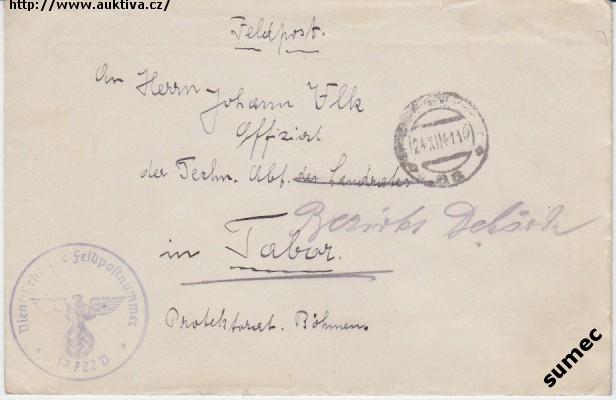 http://www.auktiva.cz/
Feldpost.
An Herrn Johann Vlk
Offizial
der Techn. Abt. des Landrates
Bezirks Behörde
in Tabor.
Protektorat. Böhmens
Dienststelle Feldpostnummer
* 17722 D *
24.XII.41 16
sumec